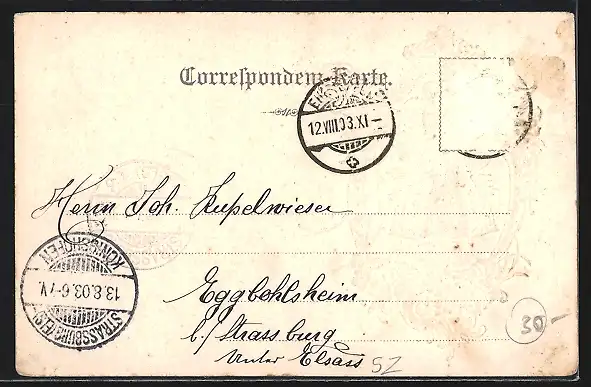 Correspondenz-Karte.
12.VIII.03.XI
Herrn Joh. Kupelwieser
KÖNIGSHOFEN
13.8.03.6-7V.
STRASSBURG (ELS)
Eggbohlsheim
b/Strassburg
Unter Elsass
SZ
30-